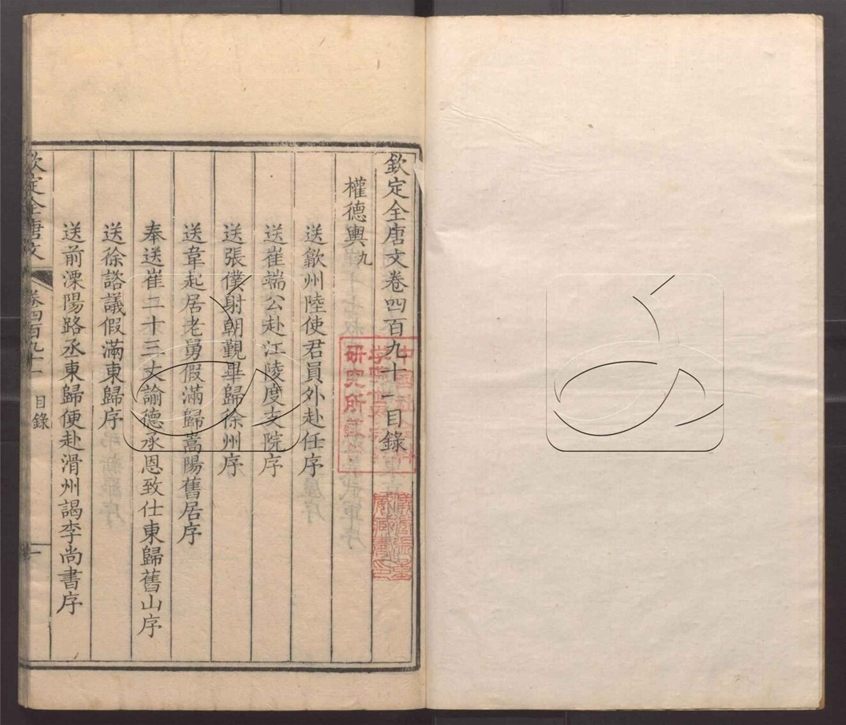 欽定全唐文卷四百九十一目錄
權德輿九
送歙州陸使君員外赴任序
送崔端公赴江陵度支院序
送張僕射朝覲畢歸徐州序
送韋起居老舅假滿歸嵩陽舊居序
奉送崔二十三丈諭德承恩致仕東歸舊山序
送徐諮議假滿東歸序
送前溧陽路丞東歸便赴滑州謁李尚書序
欽定全唐文 卷四百九十一 目錄 一
研究所